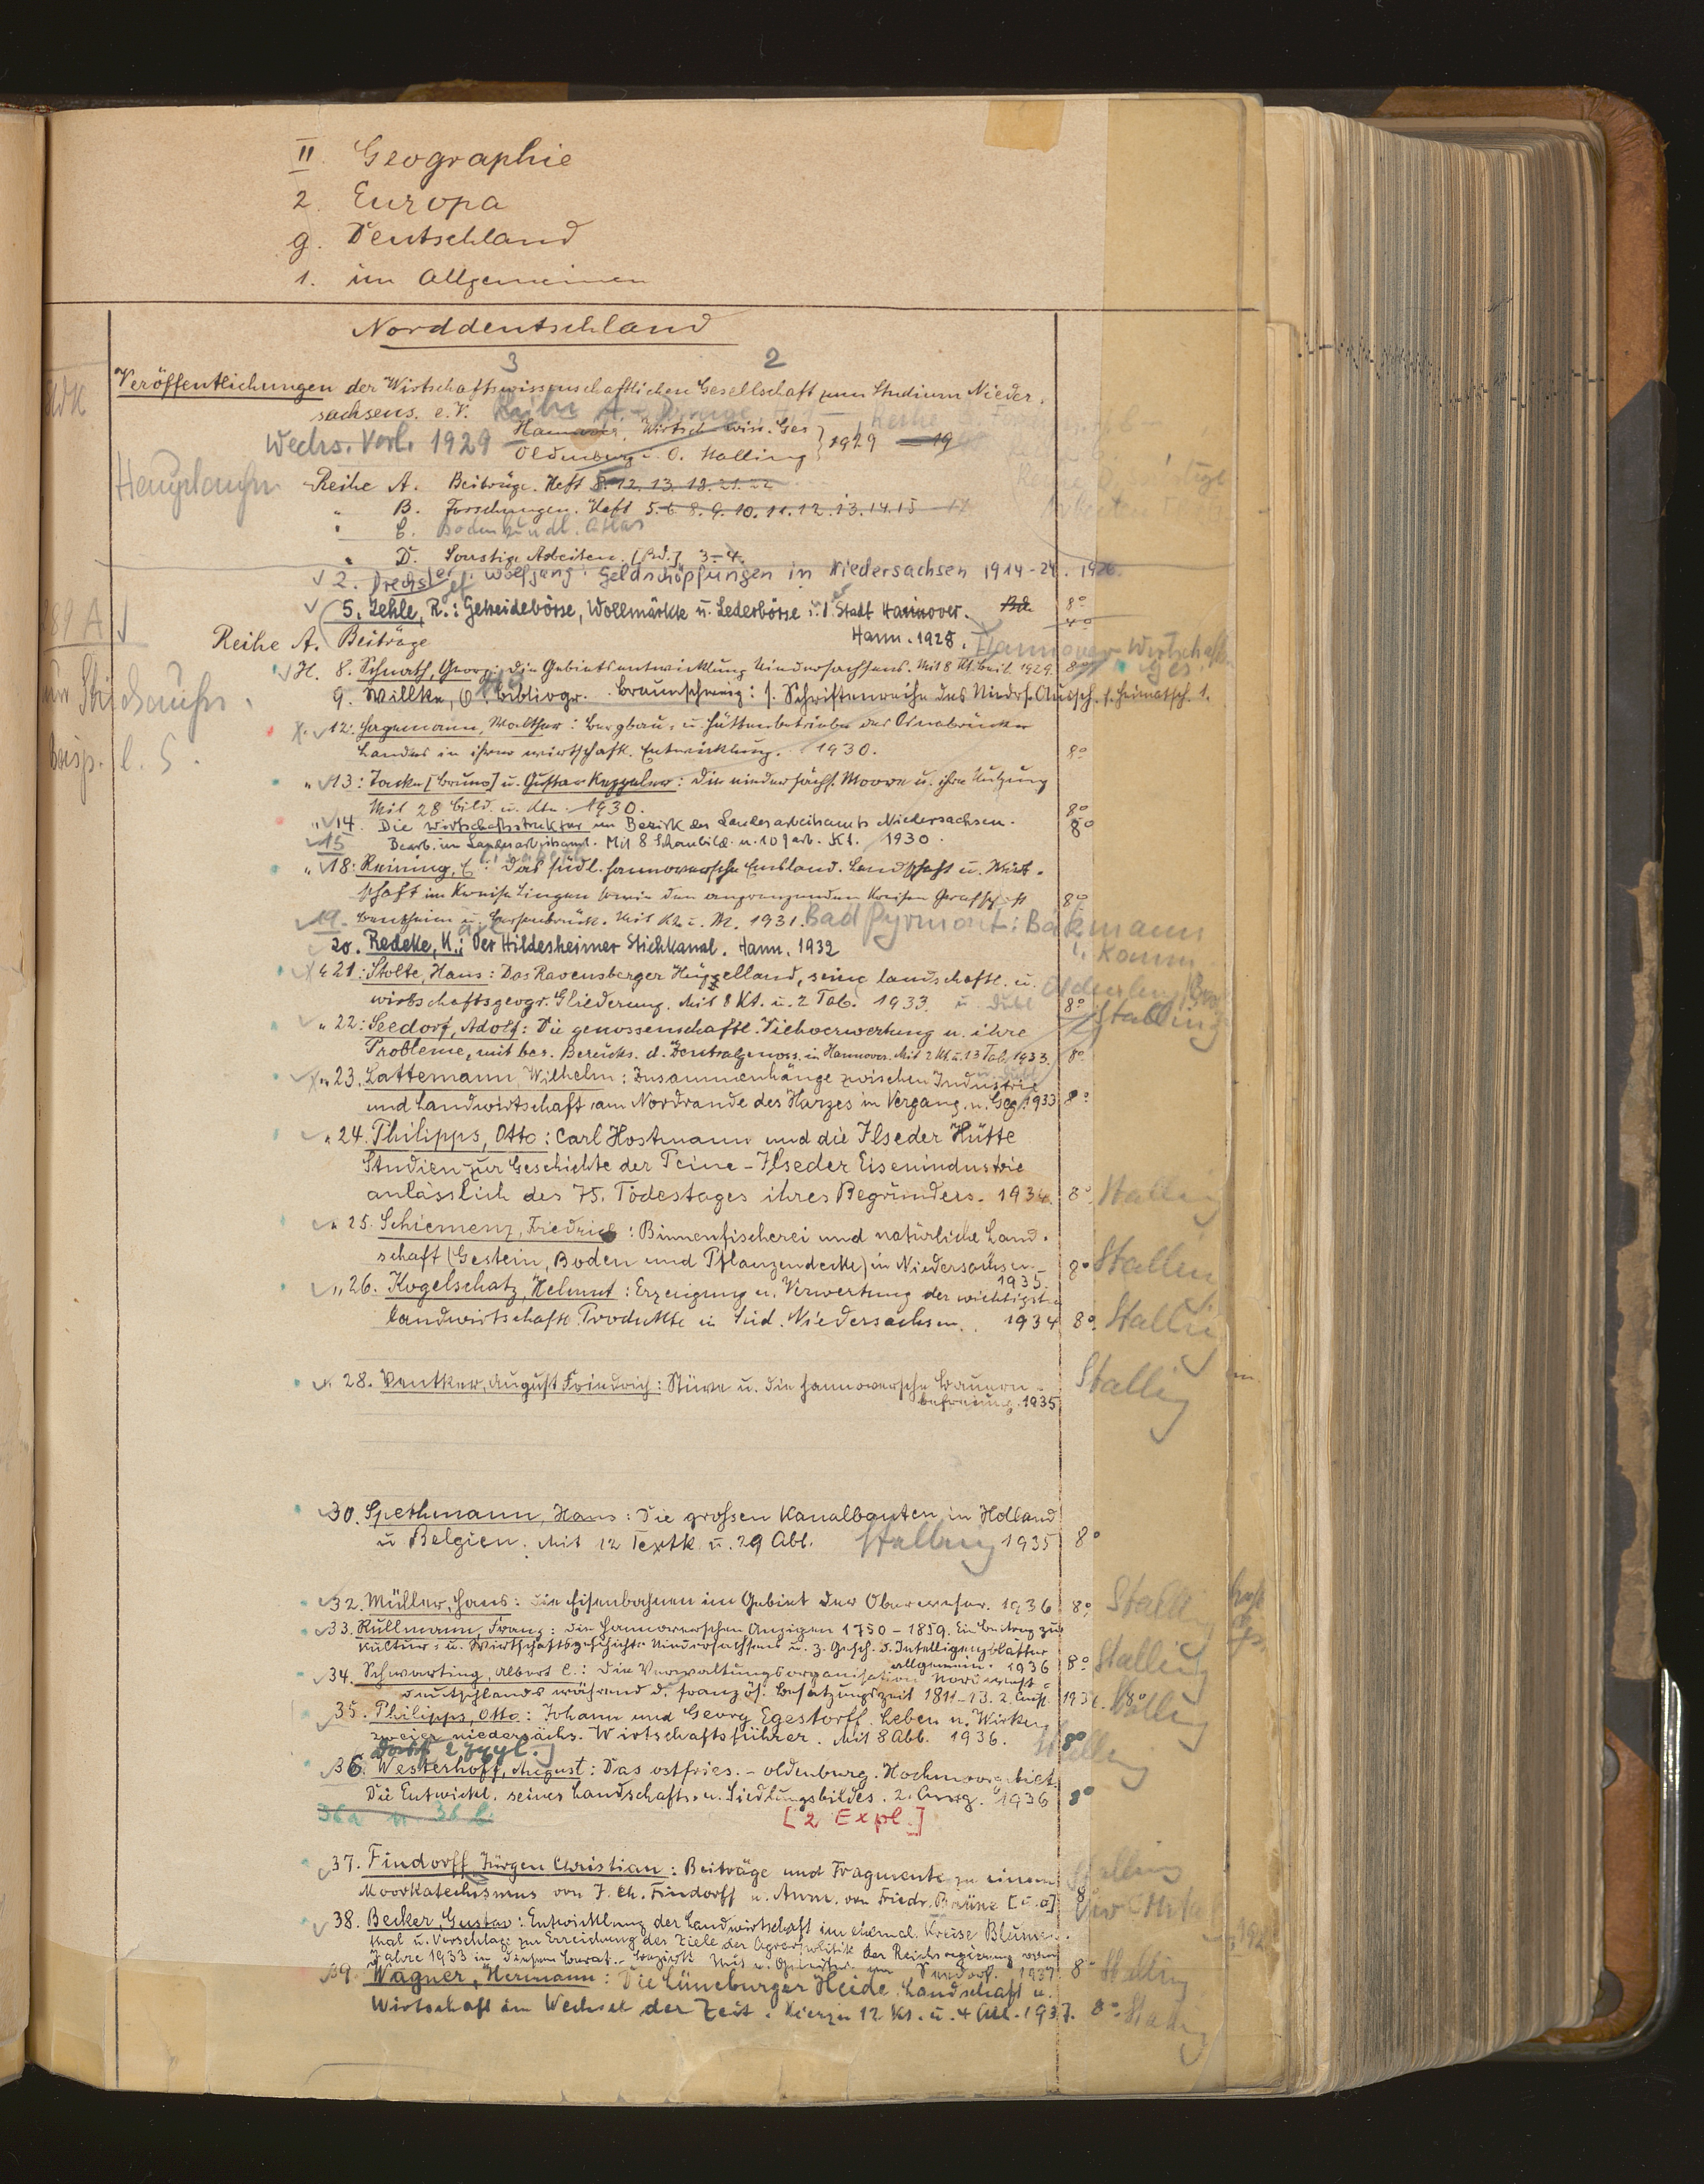 II. Geographie
2. Europa
g. Deutschland
1. im Allgemeinen
Norddeutschland
3 2
Veröffentlichungen der Wirtschaftswissenschaftlichen Gesellschaft zum Studium Nieder-
sachsens. e.V. Reihe A
Wechs. Verl. 1929 Hannover, Wirtsch. wiss. Ges
Oldenburg i. O. Stalling } 1929 — 19
Reihe A. Beiträge. Heft 8. 12. 13. 18. 21. 22
" B. Forschungen. Heft 5. 6 8. 9. 10. 11. 12. 13. 14. 15
" C. Bodenkundl. Atlas
" D. Sonstige Arbeiten. [Bd.] 3-4.
2. Drechsler, Wolfgang: Geldschöpfungen in Niedersachsen 1914-24.
5. Lehle, R.: Getreidebörse, Wollmärkte u. Lederbörse i. d. Stadt Hannover. 8°
Hann. 1928.
Reihe A. Beiträge
H. 8. Schnath, Georg: Die Gebietsentwicklung Niedersachsens. Mit 8 Kt. Beil. 1929. 8°
9. Willke, O.: Bibliogr. Braunschweig: s. Schriftenreihe des Nieders. Aussch. f. Heimatsch. 1.
12. Hagemann, Walther: Bergbau- u. Hüttenbetriebe des Osnabrücker
Landes in ihrer wirtschaftl. Entwicklung. 1930. 8°
" 13: Tacke [Bruno] u. Gustav Keppeler: Die niedersächs. Moore u. ihre Nutzung
Mit 28 Bild. u. Kte. 1930. 8°
" 14. Die Wirtschaftsstruktur im Bezirk des Landesarbeitsamts Niedersachsen. 8°
15 Bearb. im Landesarbeitsamt. Mit 8 Schaubild. u. 10 farb. Kt. 1930.
" 18: Reining, E.: Das südl. hannoversche Emsland. Landschaft u. Wirt-
schaft im Kreise Lingen sowie den angrenzenden Kreisen Grafschaft 8°
19. Bentheim u. Bersenbrück. Mit Kt. 1931. Bad Pyrmont:
20. Redeke, K.: Der Hildesheimer Stichkanal. Hann. 1932
21: Stolte, Hans: Das Ravensberger Hügelland, seine landschaftl. u.
wirtschaftsgeogr. Gliederung. Mit 8 Kt. u. 2 Tab. 1933. 8° Stalling
" 22: Seedorf, Adolf: Die genossenschaftl. Viehverwertung u. ihre
Probleme, mit bes. Berücks. d. Zentralgenoss. in Hannover. Mit 2 Kt. u. 13 Tab. 1933. 8°
" 23. Lattemann, Wilhelm: Zusammenhänge zwischen Industrie
und Landwirtschaft am Nordrande des Harzes in Vergang. u. Geg. 1933 8°
" 24. Philipps, Otto: Carl Hostmann und die Ilseder Hütte
Studien zur Geschichte der Peine-Ilseder Eisenindustrie
anlässlich des 75. Todestages ihres Begründers. 1934. 8° Stalling
" 25. Schiemenz, Friedrich: Binnenfischerei und natürliche Land-
schaft (Gestein, Boden und Pflanzendecke) in Niedersachsen.
1935. 8° Stalling
" 26. Kogelschatz, Helmut: Erzeugung u. Verwertung der wichtigsten
landwirtschaftl. Produkte in Süd-Niedersachsen. 1934 8° Stalling
" 28. Ventker, August Friedrich: Stüve u. die hannoversche Bauern-
befreiung. 1935 Stalling
30. Spethmann, Hans: Die grossen Kanalbauten in Holland
u Belgien. Mit 12 Textk u. 29 Abb. Stalling 1935 8°
32. Müller, Hans: Die Eisenbahnen im Gebiet der Oberweser. 1936 8° Stalling
33. Rullmann, Franz: Die Hannoverschen Anzeigen 1750-1859. Ein Beitrag zur
Kultur- u. Wirtschaftsgeschichte Niedersachsens u. z. Gesch. d. Intelligenzblätter
allgemein. 1936 8° Stalling
34. Schwarting, Albert C.: Die Verwaltungsorganisation Nordwest-
deutschlands während d. französ. Besatzungszeit 1811-13. 2. Aufl. 1936. 8° Stalling
35. Philipps, Otto: Johann und Georg Egestorff. Leben u. Wirken
zweier niedersächs. Wirtschaftsführer. Mit 8 Abb. 1936. 8° Stalling
36. Westerhoff, August: Das ostfries.-oldenburg. Hochmoorgebiet.
Die Entwickl. seines Landschafts- u. Siedlungsbildes. 2. Ausg. 1936 8°
36a u 36b [2 Expl.]
37. Findorff, Jürgen Christian: Beiträge und Fragmente zu einem
Moorkatechismus von J. Ch. Findorff u. Anm. von Friedr. Brüne [u. a]
38. Becker, Gustav: Entwicklung der Landwirtschaft im ehemal. Kreise Blumen-
thal u. Vorschläge zur Erreichung der Ziele der Agrarpolitik der Reichsregierung vom
Jahre 1933 in diesem Bezirk. 1937 8° Stalling
39. Wagner, Hermann: Die Lüneburger Heide. Landschaft u.
Wirtschaft im Wechsel der Zeit. Hierzu 12 Kt. u. 4 Abb. 1937. 8° Stalling